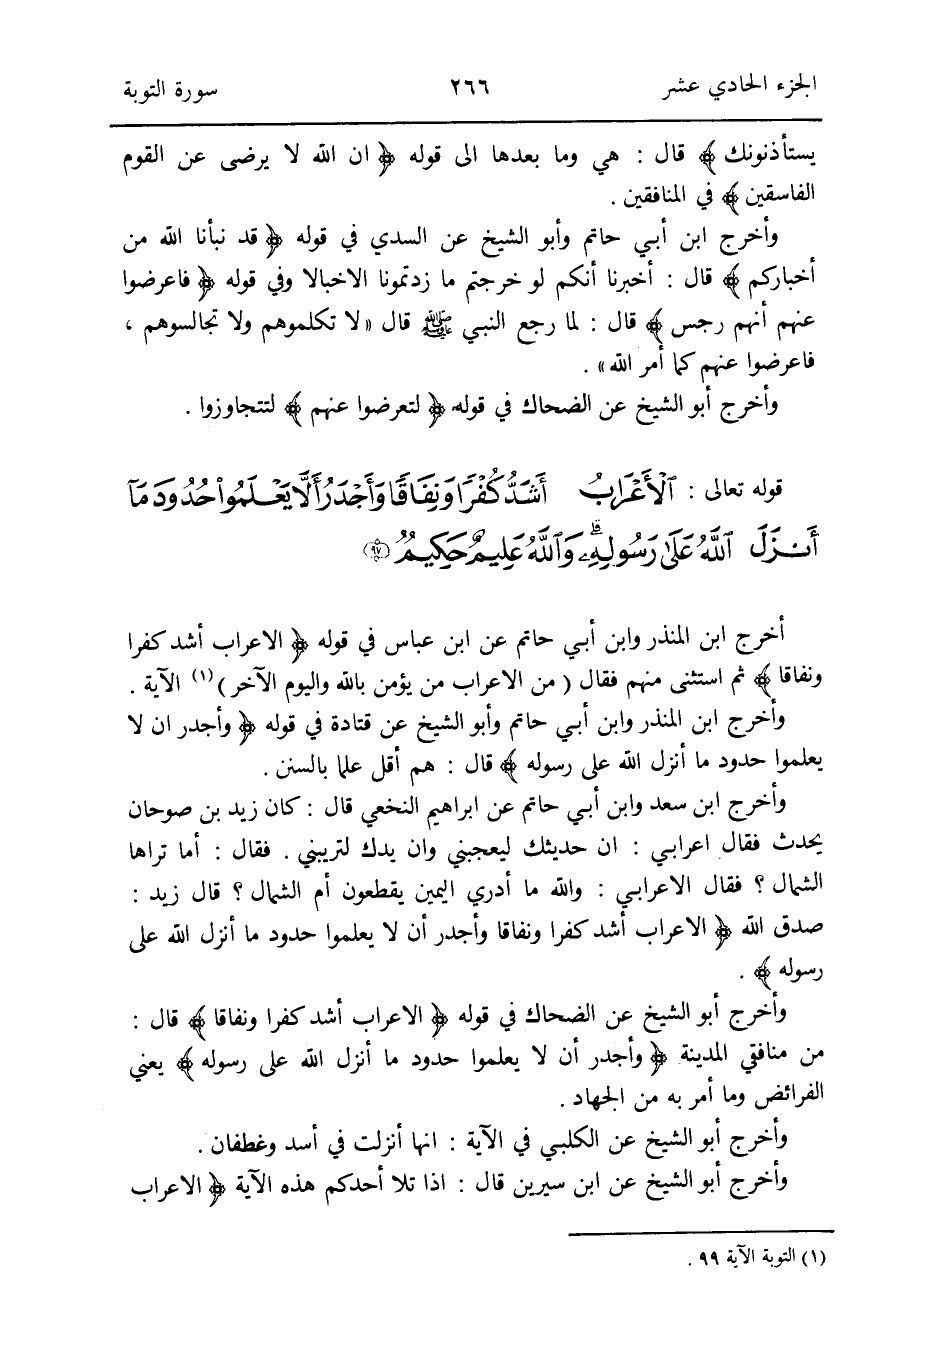 الجزء الحادي عشر ٢٦٦ سورة التوبة
يستأذنونك ﴾ قال : هي وما بعدها الى قوله ﴿ ان الله لا يرضى عن القوم
الفاسقين ﴾ في المنافقين .
وأخرج ابن أبي حاتم وأبو الشيخ عن السدي في قوله ﴿ قد نبأنا الله من
أخباركم ﴾ قال : أخبرنا أنكم لو خرجتم ما زدتمونا الاخبالا وفي قوله ﴿ فاعرضوا
عنهم أنهم رجس ﴾ قال : لما رجع النبي ﷺ قال «لا تكلموهم ولا تجالسوهم ،
فاعرضوا عنهم كما أمر الله» .
وأخرج أبو الشيخ عن الضحاك في قوله ﴿ لتعرضوا عنهم ﴾ لتتجاوزوا .
قوله تعالى : ٱلۡأَعۡرَابُ أَشَدُّ كُفۡرٗا وَنِفَاقٗا وَأَجۡدَرُ أَلَّا يَعۡلَمُواْ حُدُودَ مَآ
أَنزَلَ ٱللَّهُ عَلَىٰ رَسُولِهِۦۗ وَٱللَّهُ عَلِيمٌ حَكِيمٞ ﴿٩٧﴾
أخرج ابن المنذر وابن أبي حاتم عن ابن عباس في قوله ﴿ الاعراب أشد كفرا
ونفاقا ﴾ ثم استثنى منهم فقال ( من الاعراب من يؤمن بالله واليوم الآخر )(١) الآية .
وأخرج ابن المنذر وابن أبي حاتم وأبو الشيخ عن قتادة في قوله ﴿ وأجدر ان لا
يعلموا حدود ما أنزل الله على رسوله ﴾ قال : هم أقل علما بالسنن .
وأخرج ابن سعد وابن أبي حاتم عن ابراهيم النخعي قال : كان زيد بن صوحان
يحدث فقال اعرابي : ان حديثك ليعجبني وان يدك لتريبني . فقال : أما تراها
الشمال ؟ فقال الاعرابي : والله ما أدري اليمين يقطعون أم الشمال ؟ قال زيد :
صدق الله ﴿ الاعراب أشد كفرا ونفاقا وأجدر أن لا يعلموا حدود ما أنزل الله على
رسوله ﴾ .
وأخرج أبو الشيخ عن الضحاك في قوله ﴿ الاعراب أشد كفرا ونفاقا ﴾ قال :
من منافقي المدينة ﴿ وأجدر أن لا يعلموا حدود ما أنزل الله على رسوله ﴾ يعني
الفرائض وما أمر به من الجهاد .
وأخرج أبو الشيخ عن الكلبي في الآية : انها أنزلت في أسد وغطفان .
وأخرج أبو الشيخ عن ابن سيرين قال : اذا تلا أحدكم هذه الآية ﴿ الاعراب
(١) التوبة الآية ٩٩ .